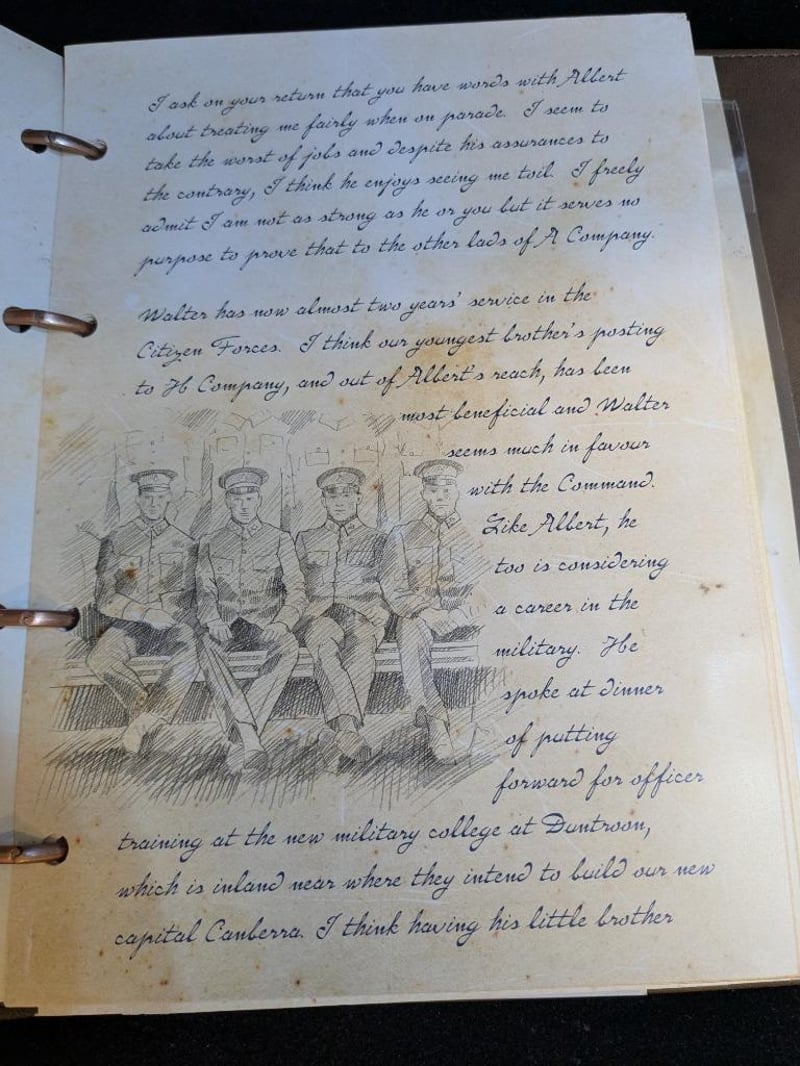 I ask on your return that you have words with Albert
about treating me fairly when on parade. I seem to
take the worst of jobs and despite his assurances to
the contrary, I think he enjoys seeing me toil. I freely
admit I am not as strong as he or you but it serves no
purpose to prove that to the other lads of A Company.
Walter has now almost two years' service in the
Citizen Forces. I think our youngest brother's posting
to H Company, and out of Albert's reach, has been
most beneficial and Walter
seems much in favour
with the Command.
Like Albert, he
too is considering
a career in the
military. He
spoke at dinner
of putting
forward for officer
training at the new military college at Duntroon,
which is inland near where they intend to build our new
capital Canberra. I think having his little brother